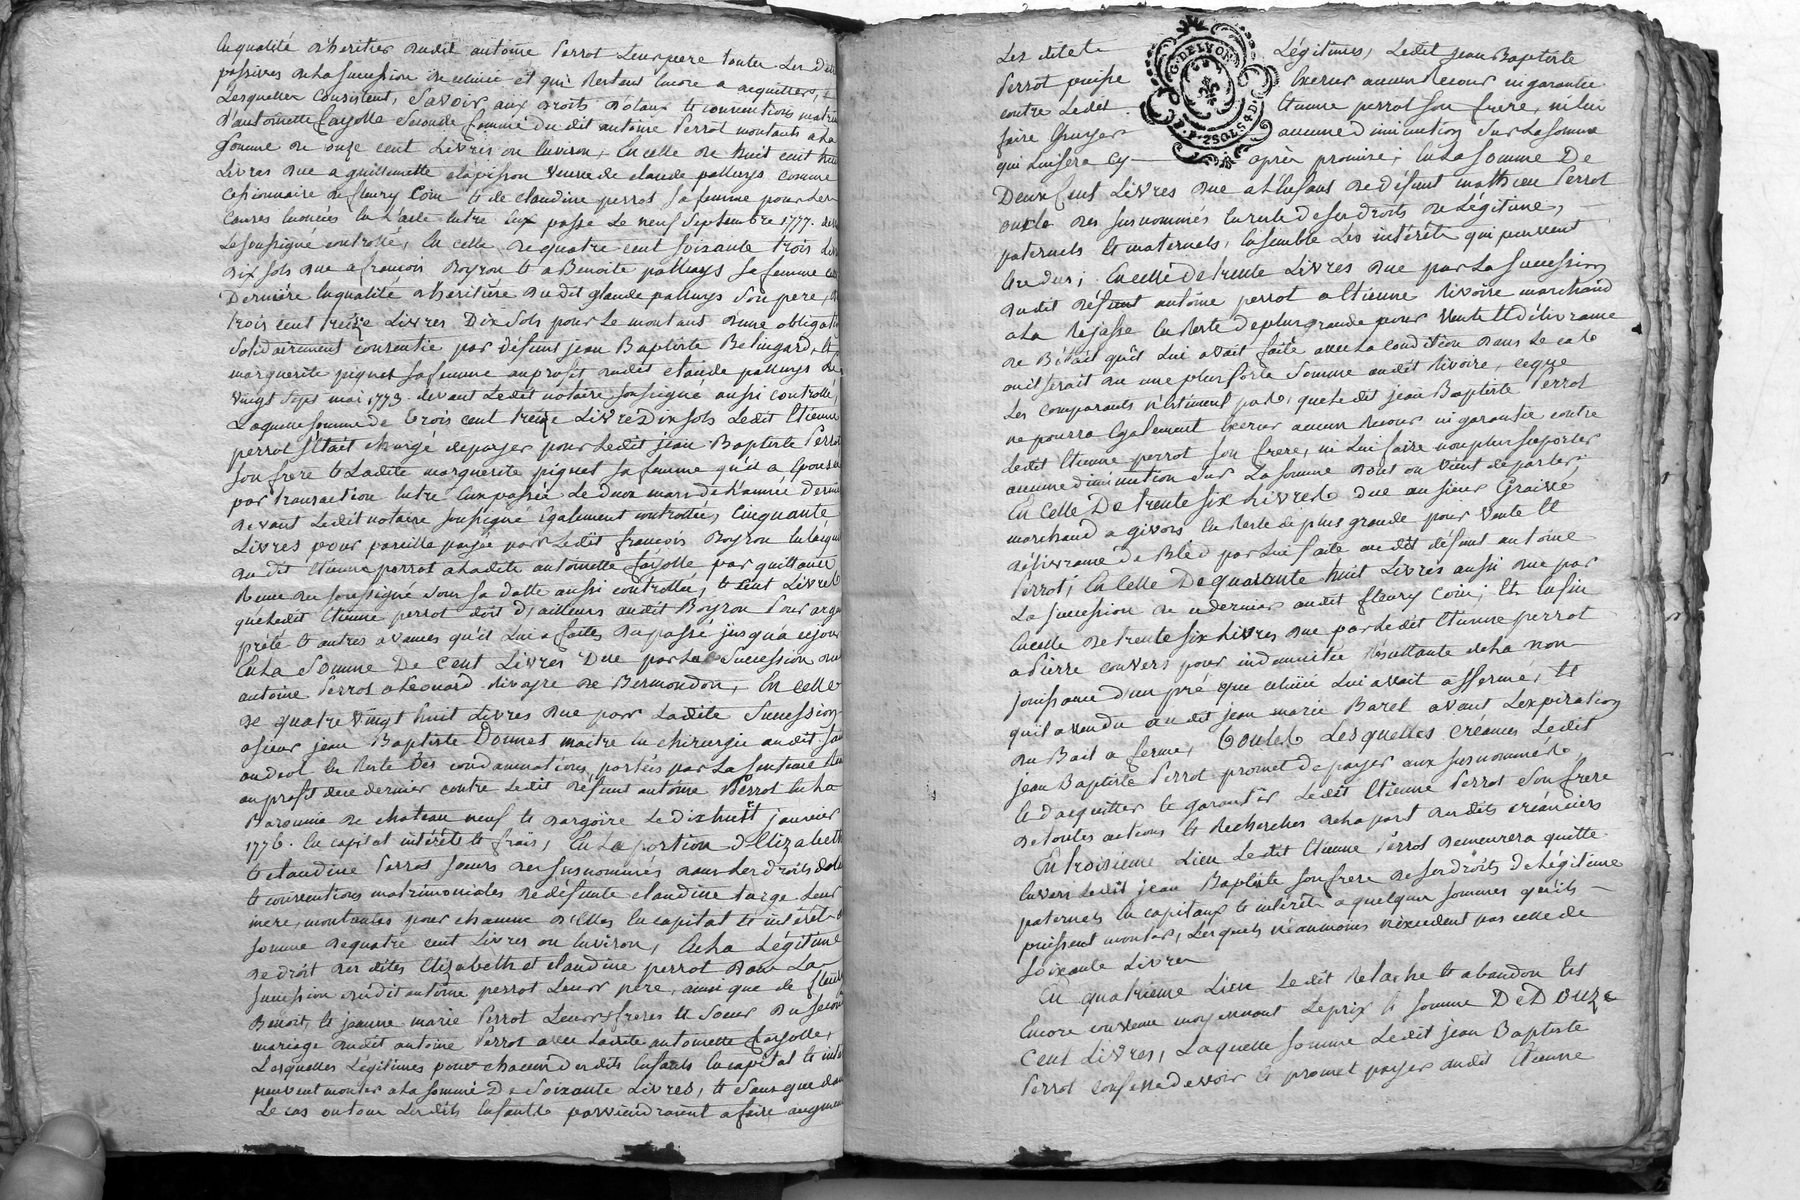 En qualité d'heritier dudit antoine Perrot Leur pere toutes Les Dettes
passives de La succession de celuici et qui Restent Encore a acquitter,
Lesquelles Consistent, Savoir, aux droits dotaux et conventions matri
d'antoinette fayolle Seconde femme du dit antoine Perrot montants a La
Somme de onze cent Livres ou Environ, En celle de huit cent
Livres due a guillemette clapisson veuve de claude palluys comme
Cessionnaire de fleury Coin et de claudine perrot sa femme pour Les
Causes Enoncées En L'acte Entre Eux passé Le neuf Septembre 1777. devant
Le soussigné controllé, En celle de quatre cent soixante trois Livres
Dix sols due a francois Boyron et a Benoite palluys sa femme
Derniere En qualité d'heritiere du dit claude palluys Son pere,
trois cent treize Livres Dix Sols pour Le montant d'une obligation
Solidairement consentie par défunts jean Baptiste Belingard et
marguerite piguet sa femme au profit dudit claude palluys Le
vingt Sept mai 1773. devant Ledit notaire soussigné aussi controllé
Laquelle somme de trois cent treize Livres Dix sols Ledit Etienne
perrot s'était chargé de payer pour Ledit jean Baptiste Perrot
son frere et Ladite marguerite piguet sa femme qu'il a Epousée
par transaction Entre Eux passée Le deux mars de L'année derniere
devant Ledit notaire soussigné Egalement controllée, Cinquante
Livres pour pareille payée par Ledit francois Boyron En L'acquit
du dit Etienne perrot a Ladite antoinette fayolle par quittance
Reçue du soussigné sous sa datte aussi controllée, et Cent Livres
que Ledit Etienne perrot doit d'ailleurs audit Boyron Pour argent
prêté et autres avances qu'il Lui a faites du passé jusqu'à ce jour
En La Somme De Cent Livres Due par La Succession dudit
antoine Perrot a Leonard Rivoyre de Bermondon, En celle
de quatre vingt huit Livres due par Ladite Succession
a sieur jean Baptiste Donnet maitre En chirurgie audit
En Reste Des condamnations portées par La sentence
au profit de ce dernier contre Ledit défunt antoine Perrot En La
Baronnie de chateau neuf et dargoire Le dix huit janvier
1776. En capital intérêts et frais, En La portion d'Elizabeth
et claudine Perrot sœurs des susnommés dans Les droits dotaux
et conventions matrimoniales de défunte claudine targe Leur
mere, montantes pour chacune d'Elles En capital et intérêts
somme de quatre cent Livres ou Environ, En La Légitime
de droit des dites Elizabeth et claudine perrot dans La
succession dudit antoine perrot Leur pere, ainsi que de fleury
Benoit, et jeanne marie Perrot Leurs freres et Soeur du second
mariage dudit antoine Perrot avec Ladite antoinette fayolle,
Lesquelles Légitimes pour chacun des dits Enfants En capital et intérêts
peuvent monter a La somme De Soixante Livres, et Sans que dans
Le cas ou tous Lesdits Enfants parviendraient a faire augmenter
Les dites Légitimes, Ledit jean Baptiste
Perrot puisse Exercer aucun Recour ni garantie
contre Ledit Etienne perrot son frere, ni lui
faire Essuyer aucune diminution Sur La Somme
qui Lui sera Cy après promise; En La somme De
Deux Cent Livres due a L'Enfant de défunt mathieu Perrot
oncle des susnommés En reste de ses droits de Légitime,
paternels et maternels, Ensemble Les intérêts qui peuvent
Etre dus; En celle De trente Livres due par La succession
dudit défunt antoine perrot a Etienne Rivoire marchand
a La Rejasse En Reste de plus grande pour vente et délivrance
de Bétail qu'il Lui avait faite avec La condition dans Le cas
ou il serait du une plus forte Somme audit Rivoire, ce que
Les comparants n'Estiment pas, que Ledit jean Baptiste Perrot
ne pourra Egalement Exercer aucun Recour ni garantie contre
Ledit Etienne perrot son frere, ni Lui faire non plus suporter
aucune diminution sur La somme dont on vient de parler;
En Celle De trente six Livres due au sieur Graisse
marchand a givors En Reste de plus grande pour vente et
délivrance de Bled par Lui faite au dit défunt antoine
Perrot; En Celle De quarante huit Livres aussi due par
La succession de ce dernier audit fleury Coin; Et Enfin
En celle de trente six Livres due par Ledit Etienne perrot
a Pierre convers pour indemnitée Résultante de La non
jouissance d'un pré que celuici Lui avait affermé, et
qu'il a vendu au dit jean marie Baret avant L'expiration
du Bail a ferme, Toutes Lesquelles créances Ledit
jean Baptiste Perrot promet de payer aux susnommés,
et d'acquitter et garantir Ledit Etienne Perrot Son frere
de toutes actions et Recherches de La part des dits créanciers
En troisieme Lieu Ledit Etienne Perrot demeurera quitte
Envers Ledit jean Baptiste son frere de ses droits de Légitime
paternels En capitaux et intérêts a quelques sommes qu'ils
puissent monter, Lesquels néanmoins n'excedent pas celle de
soixante Livres
En quatrieme Lieu Ledit Relache et abandon Est
Encore convenu moyennant Le prix et somme De Douze
Cent Livres, Laquelle somme Ledit jean Baptiste
Perrot confesse devoir et promet payer audit Etienne
G. DE LYON
2 SOLS 4 D.